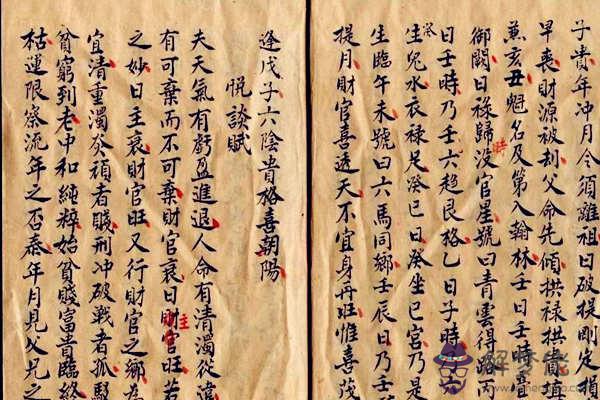 子貴年冲月令須離祖日破提剛定損
早喪財源被刦父命先傾拱禄拱貴填
兼亥丑魁名及第入翰林壬日壬時
御闕日禄歸没官星號曰青雲得路丙
日壬時乃壬六趋艮格乙日子時
生児水衣禄足癸巳日癸坐巳宫乃是
生臨午未號曰六馬同鄉壬辰日乃壬
提月財官喜透天不宜身再旺惟喜茂
逢戊子六陰貴格喜朝陽
悦談賦
夫天氣有虧盈進退人命有清濁從違
有可棄而不可棄財官衰日主財官旺若
之妙日主衰財官旺又行財官之鄉為
宜清重濁頑者賤刑冲破戰者孤
貧窮到老中和純粹始貧賤富貴臨終
枯運限察流年之否泰年月見父兄之